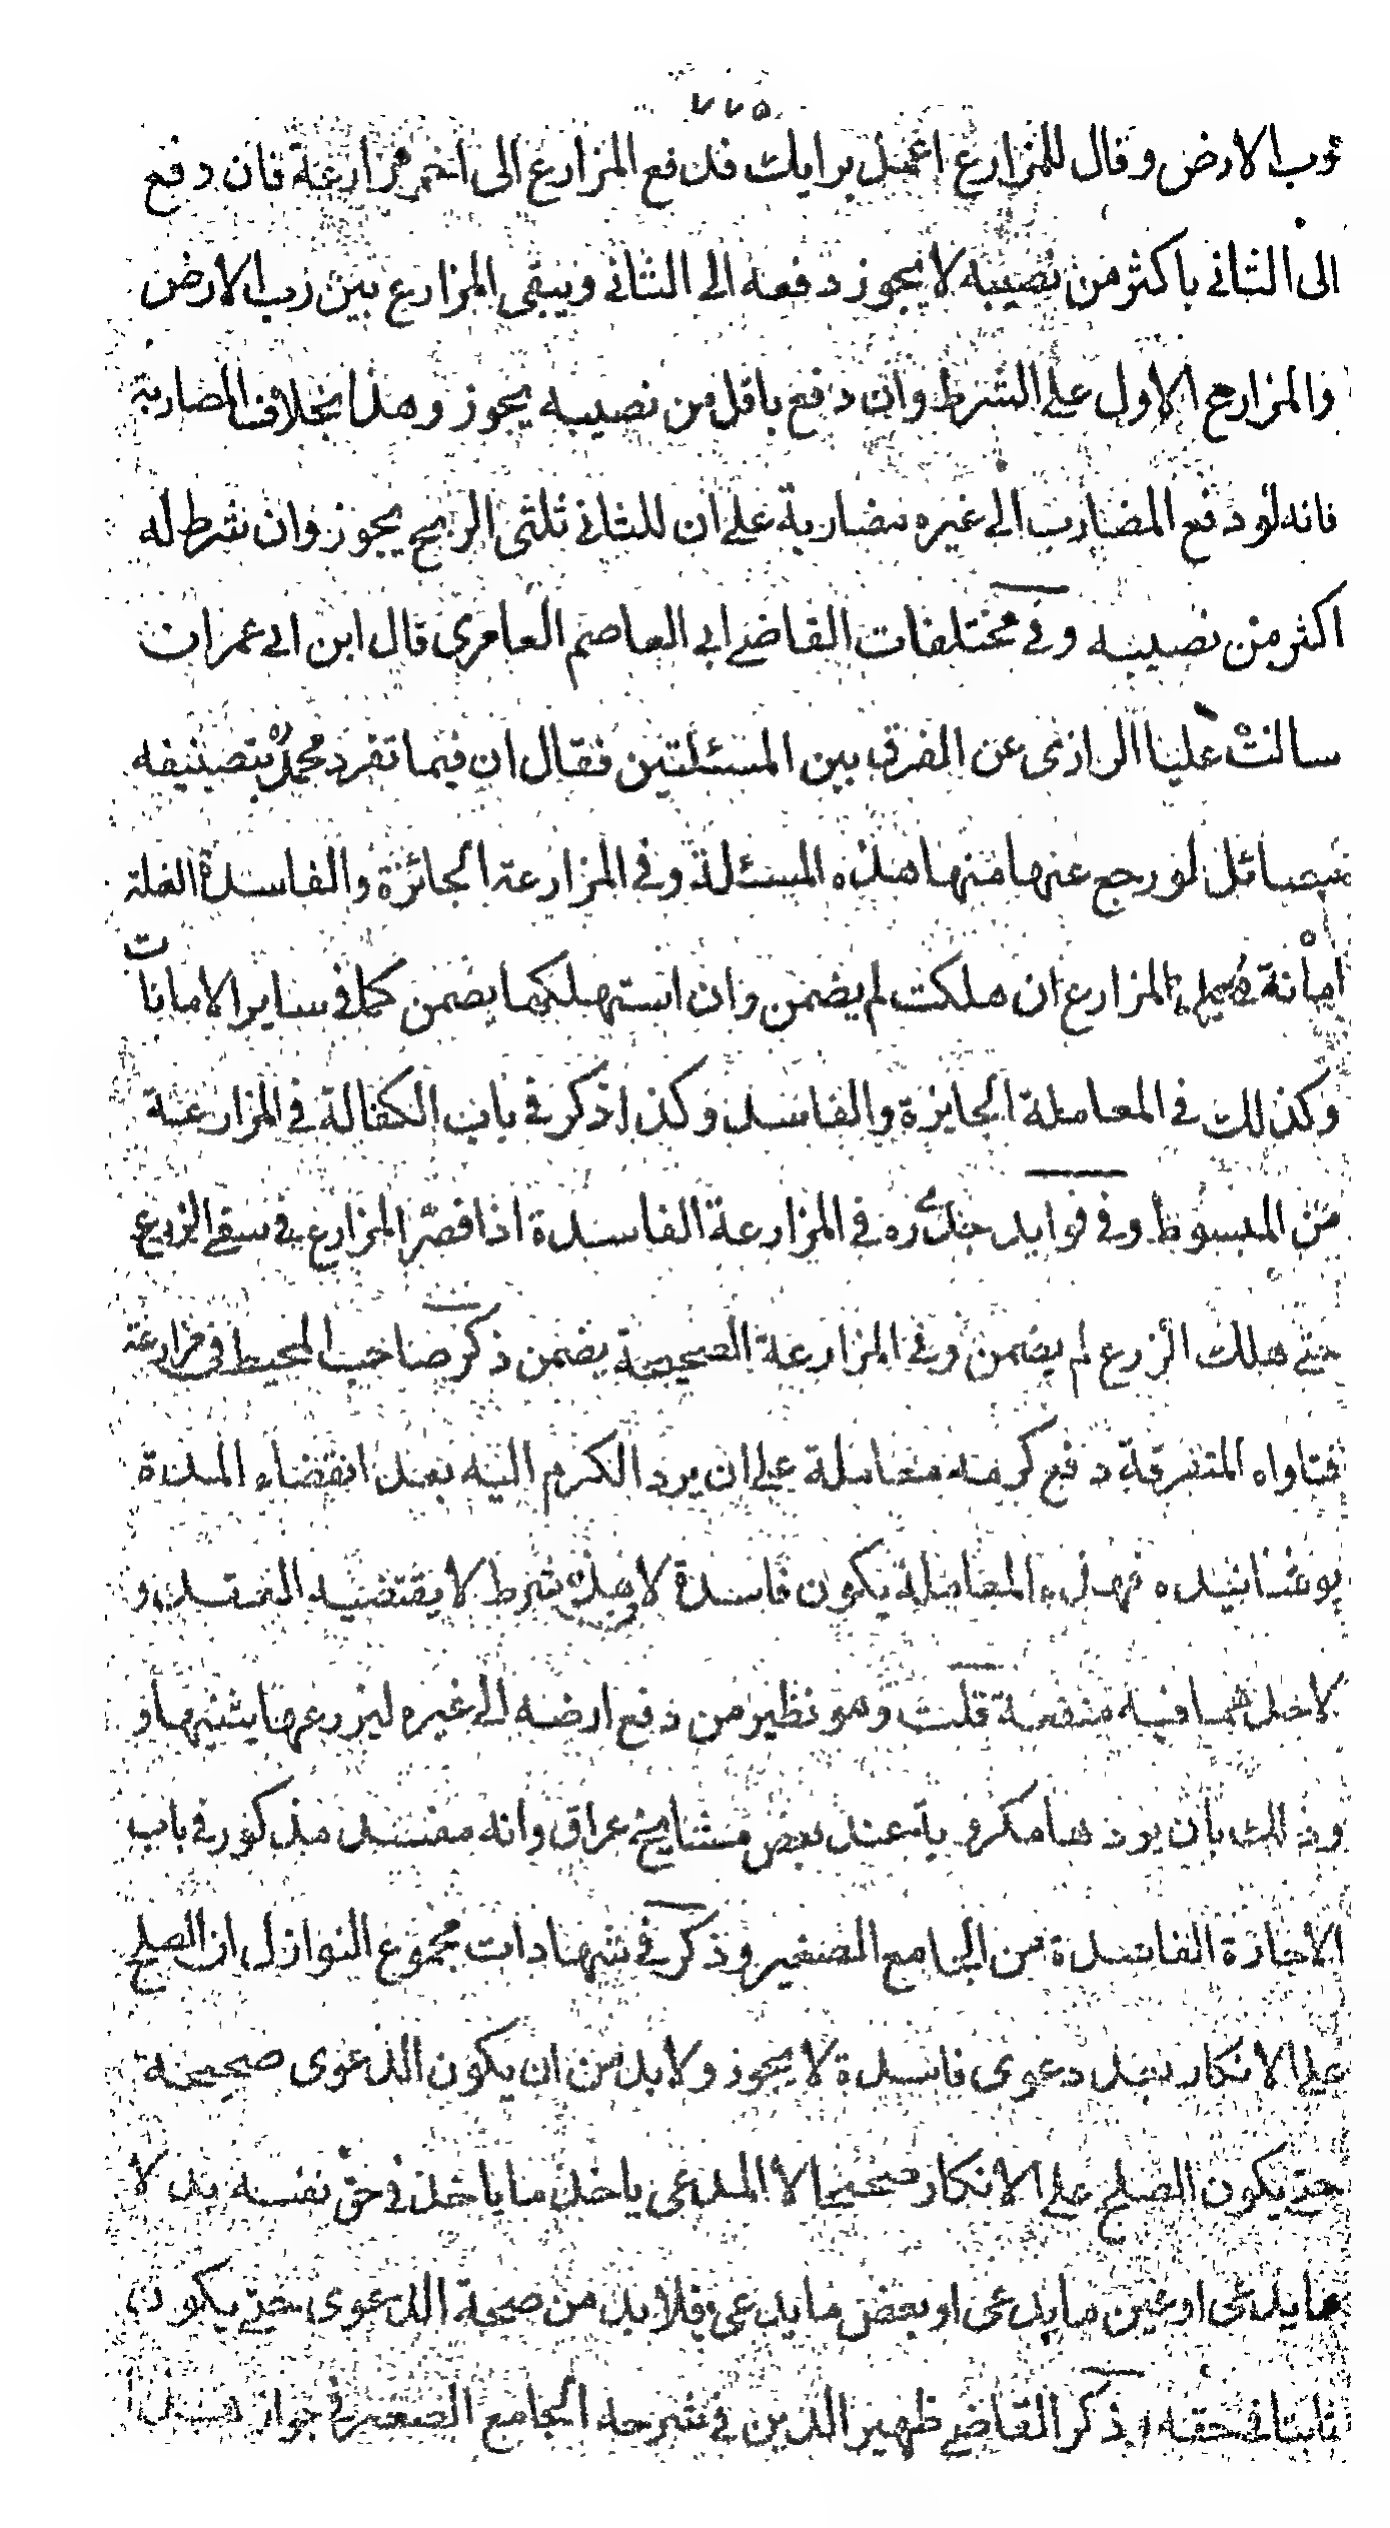 ٧٧٥
رب الارض وقال للمزارع اعمل برايك فدفع المزارع الى اخر مزارعة فان دفع
الى الثانى باكثر من نصيبه لا يجوز دفعه الى الثانى ويبقى المزارع بين رب الارض
والمزارع الاول على الشرط وان دفع باقل من نصيبه يجوز وهذا بخلاف المضاربة
فانه لو دفع المضارب الى غيره مضاربة على ان للثانى ثلثى الربح يجوز وان شرط له
اكثر من نصيبه وفى مختلفات القاضى ابى العاصم العامرى قال ابن ابى عمران
سالت عليا الرازى عن الفرق بين المسئلتين فقال ان فيما تفرد محمد بتصنيفه
مسائل لو رجع عنها منها هذه المسئلة وفى المزارعة الجائزة والفاسدة الغلة
امانة المزارع ان هلكت لم يضمن وان استهلكها يضمن كما فى ساير الامانات
وكذلك فى المعاملة الجايزة والفاسد وكذا ذكر فى باب الكفالة فى المزارعة
من المبسوط وفى فوايد جدى ره فى المزارعة الفاسدة اذا قصر المزارع فى سقى الزرع
حتى هلك الزرع لم يضمن وفى المزارعة الصحيحة يضمن ذكر صاحب المحيط فى مزارعة
فتاواه المتفرقة دفع كرمه معاملة على ان يرد الكرم اليه بعد انقضاء المدة
فهذه المعاملة يكون فاسدة لا هذا شرط لا يقتضيه العقد و
لاحدهما فيه منفعة قلت وهو نظير من دفع ارضه الى غيره ليزرعها يثنيها و
وذلك بان يردها مكروبة عند بعض مشايخ عراق وانه مفسد مذكور فى باب
الاجارة الفاسدة من الجامع الصغير وذكر فى شهادات مجموع النوازل ان الصلح
على الانكار بعد دعوى فاسدة لا يجوز ولا بد من ان يكون الدعوى صحيحة
حتى يكون الصلح على الانكار صحيحا لا المدعى ياخذ ما ياخذ فى حق نفسه بدلا
ما يدعى او عين ما يدعى او بعض ما يدعى فلا بد من صحة الدعوى حتى يكون
ثابتا فى حقه وذكر القاضى ظهير الدين فى شرحه الجامع الصغير فى جواز هذا